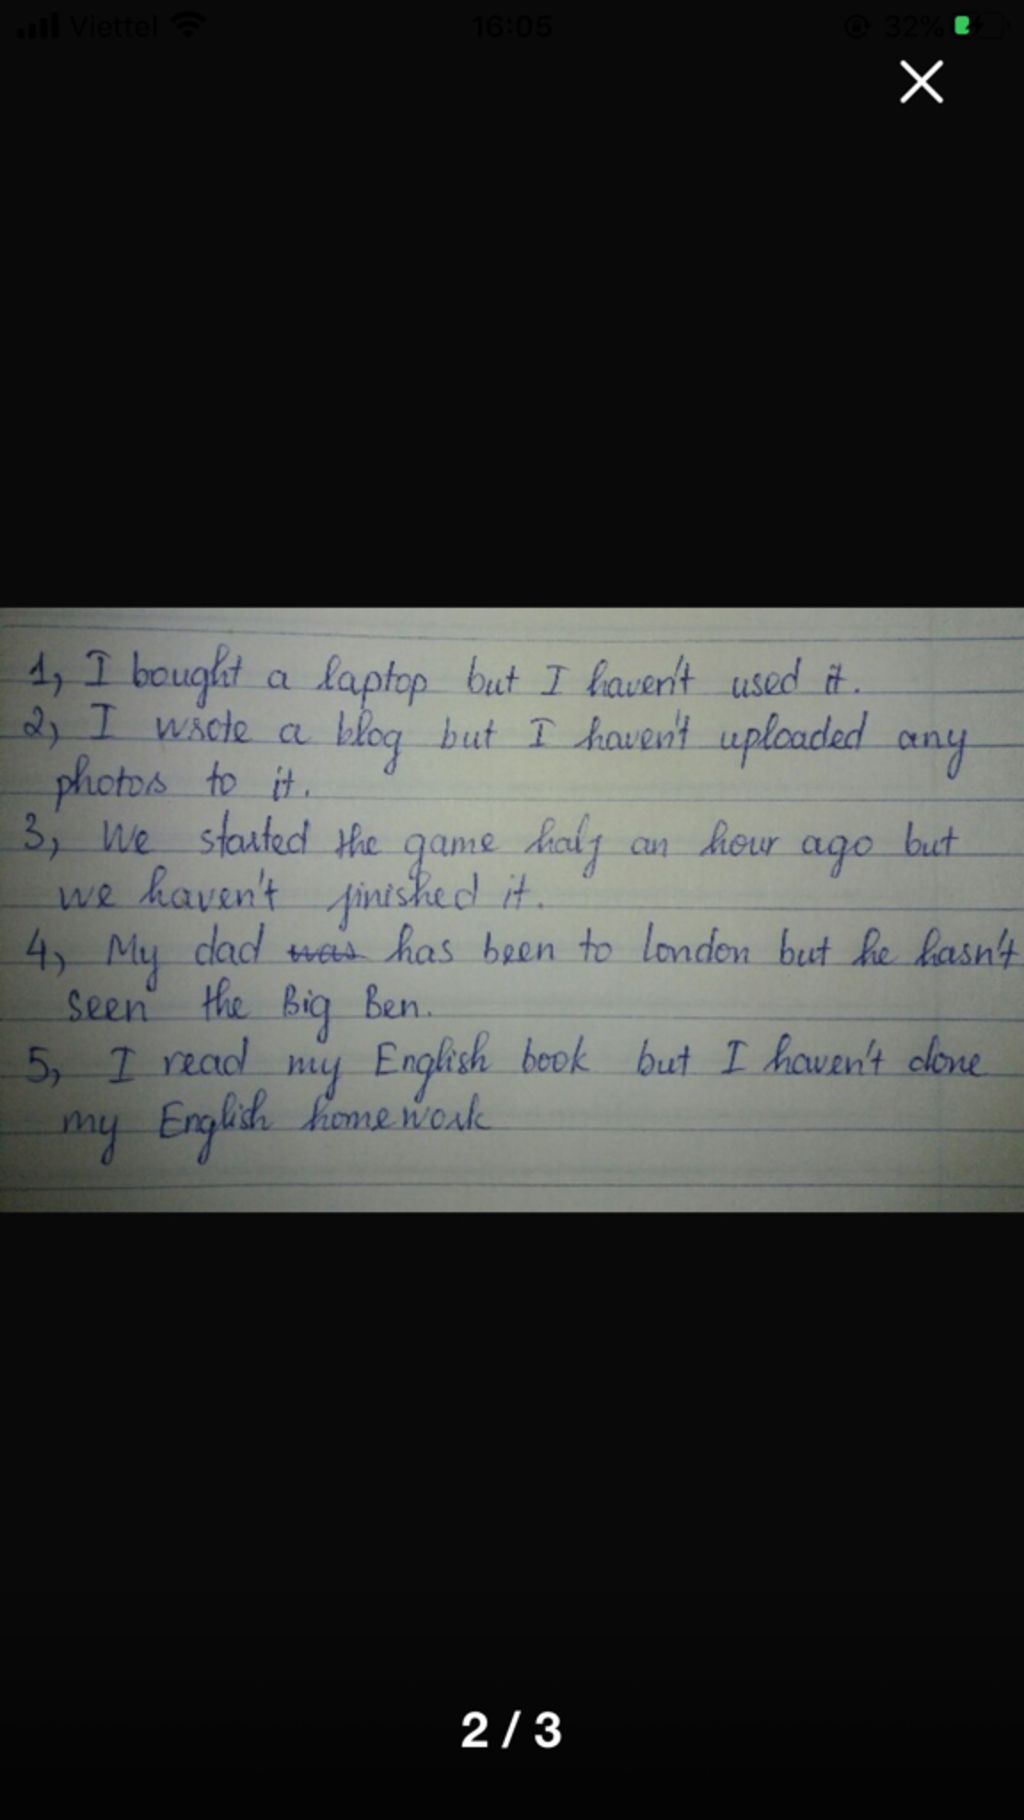 Viettel 16:05 32%
1, I bought a laptop but I haven't used it.
2, I wrote a blog but I haven't uploaded any
photos to it.
3, We started the game half an hour ago but
we haven't finished it.
4, My dad was has been to London but he hasn't
seen the Big Ben.
5, I read my English book but I haven't done
my English homework
2 / 3